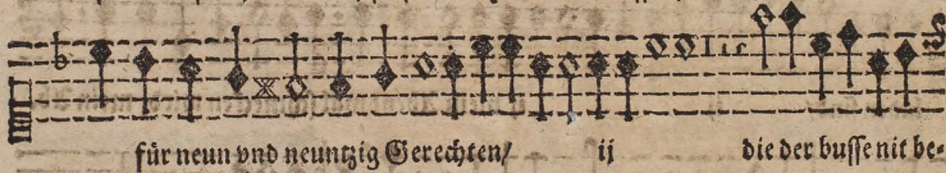 für neun vnd neuntzig Gerechten/ ij die der busse nit be-